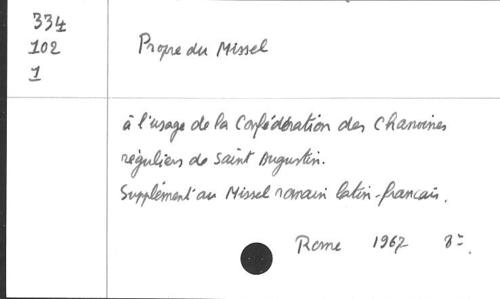 334
102
1
Propre du Missel
à l'usage de la Confédération des Chanoines
réguliers de Saint Augustin.
Supplément au Missel romain latin-francais.
Rome 1967 8=.